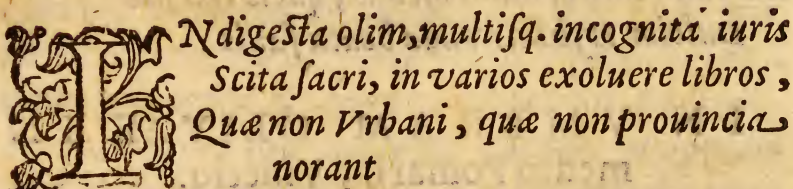 INdigeſta olim, multiſq. incognita iuris
Scita ſacri, in varios exoluere libros,
Quæ non Vrbani, quæ non prouincia
norant